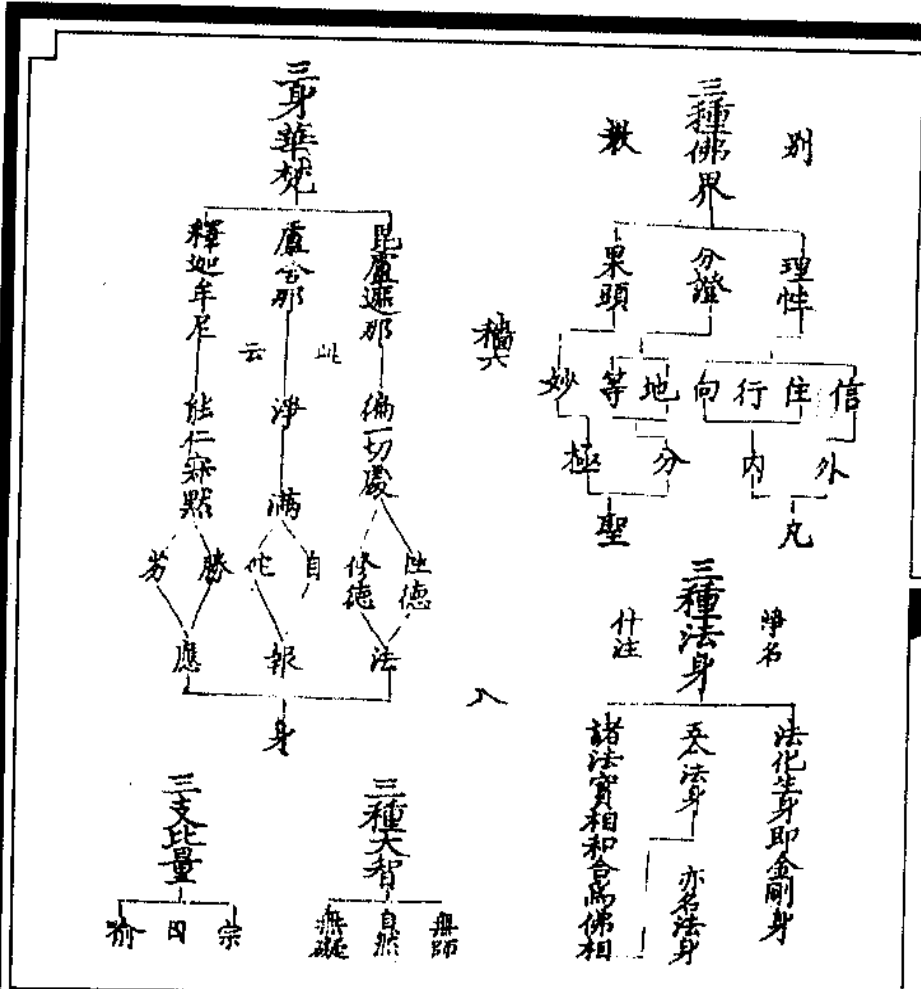 三種佛界
別
教
理性
分證
果頭
信
住
行
向
地
等
妙
外
內
分
極
凡
聖
三種法身
淨名
什注
法化生身即金剛身
五分法身
亦名法身
諸法實相和合為佛相
八
三身華梵
毘盧遮那
盧舍那
釋迦牟尼
此
云
徧一切處
淨
滿
能仁寂默
性德
修德
自
他
勝
劣
法
報
應
身
三種大智
無師
自然
無礙
三支比量
宗
因
喻